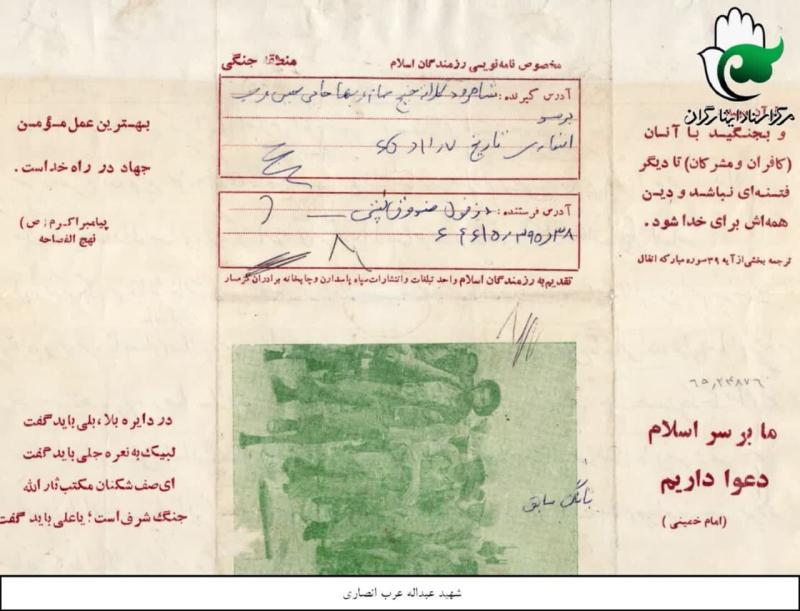 مرکز اسناد ایثارگران
مخصوص نامه نویسی رزمندگان اسلام منطقه جنگی
آدرس گیرنده: شاهرود
انصاری تاریخ
آدرس فرستنده: دزفول صندوق پستی
تقدیم به رزمندگان اسلام واحد تبلیغات و انتشارات سپاه پاسداران و چاپخانه برادران گرمسار
و بجنگید با آنان
(کافران و مشرکان) تا دیگر
فتنه‌ای نباشد و دین
همه‌اش برای خدا شود.
ترجمه بخشی از آیه ۳۹ سوره مبارکه انفال
بهترین عمل مؤمن
جهاد در راه خداست.
پیامبر اکرم (ص)
نهج الفصاحه
ما بر سر اسلام
دعوا داریم
(امام خمینی)
در دایره بلا، بلی باید گفت
لبیک به نعره جلی باید گفت
ای صف شکنان مکتب ثار الله
جنگ شرف است؛ یا علی باید گفت
بانک سابق
شهید عبداله عرب انصاری